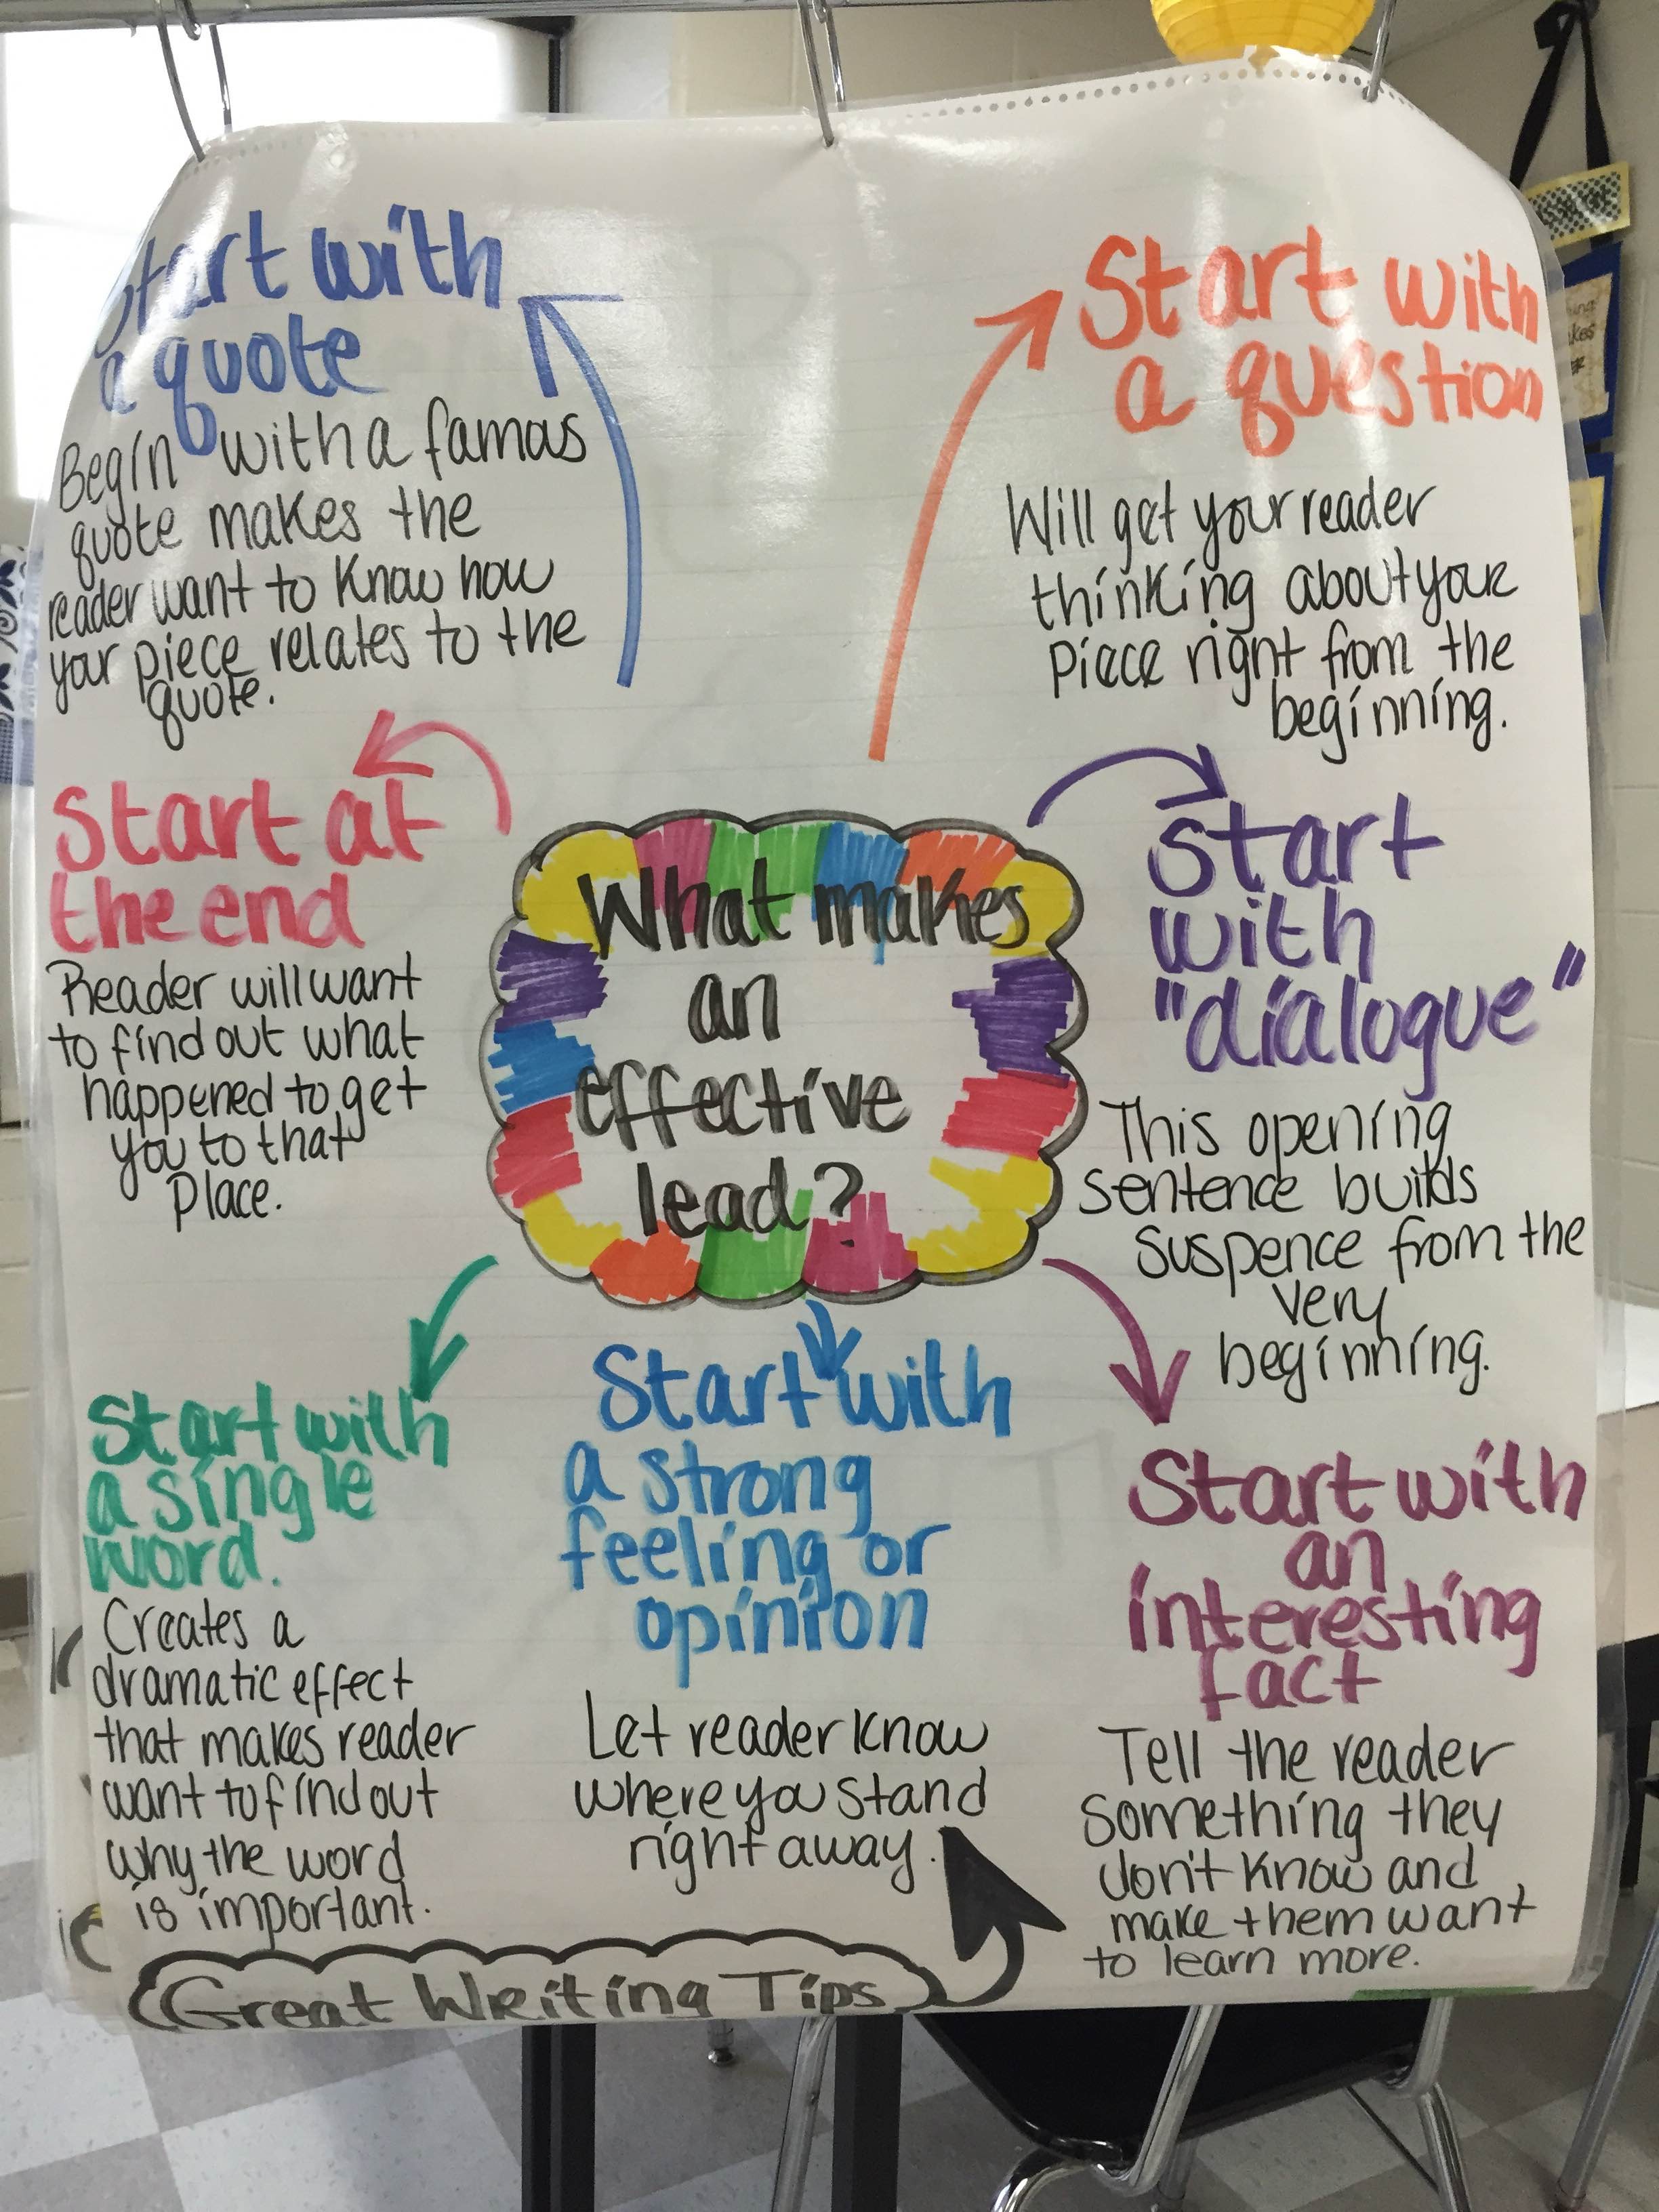 Start with
a quote
Begin with a famous
quote makes the
reader want to know how
your piece relates to the
quote.
Start with
a question
Will get your reader
thinking about your
piece right from the
beginning.
Start at
the end
Reader will want
to find out what
happened to get
you to that
place.
What makes
an
effective
lead?
Start
with
"dialogue"
This opening
sentence builds
suspence from the
very
beginning.
Start with
a single
word.
Creates a
dramatic effect
that makes reader
want to find out
why the word
is important.
Start with
a strong
feeling or
opinion
Let reader know
where you stand
right away.
Start with
an
interesting
fact
Tell the reader
something they
don't know and
make them want
to learn more.
Great Writing Tips